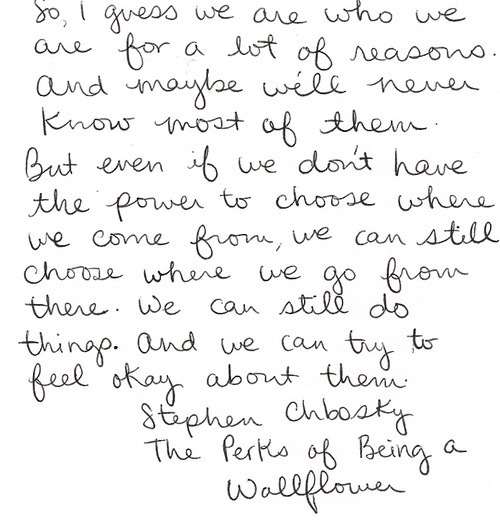 So, I guess we are who we
are for a lot of reasons.
And maybe we'll never
know most of them.
But even if we don't have
the power to choose where
we come from, we can still
choose where we go from
there. We can still do
things. And we can try to
feel okay about them.
Stephen Chbosky
The Perks of Being a
Wallflower